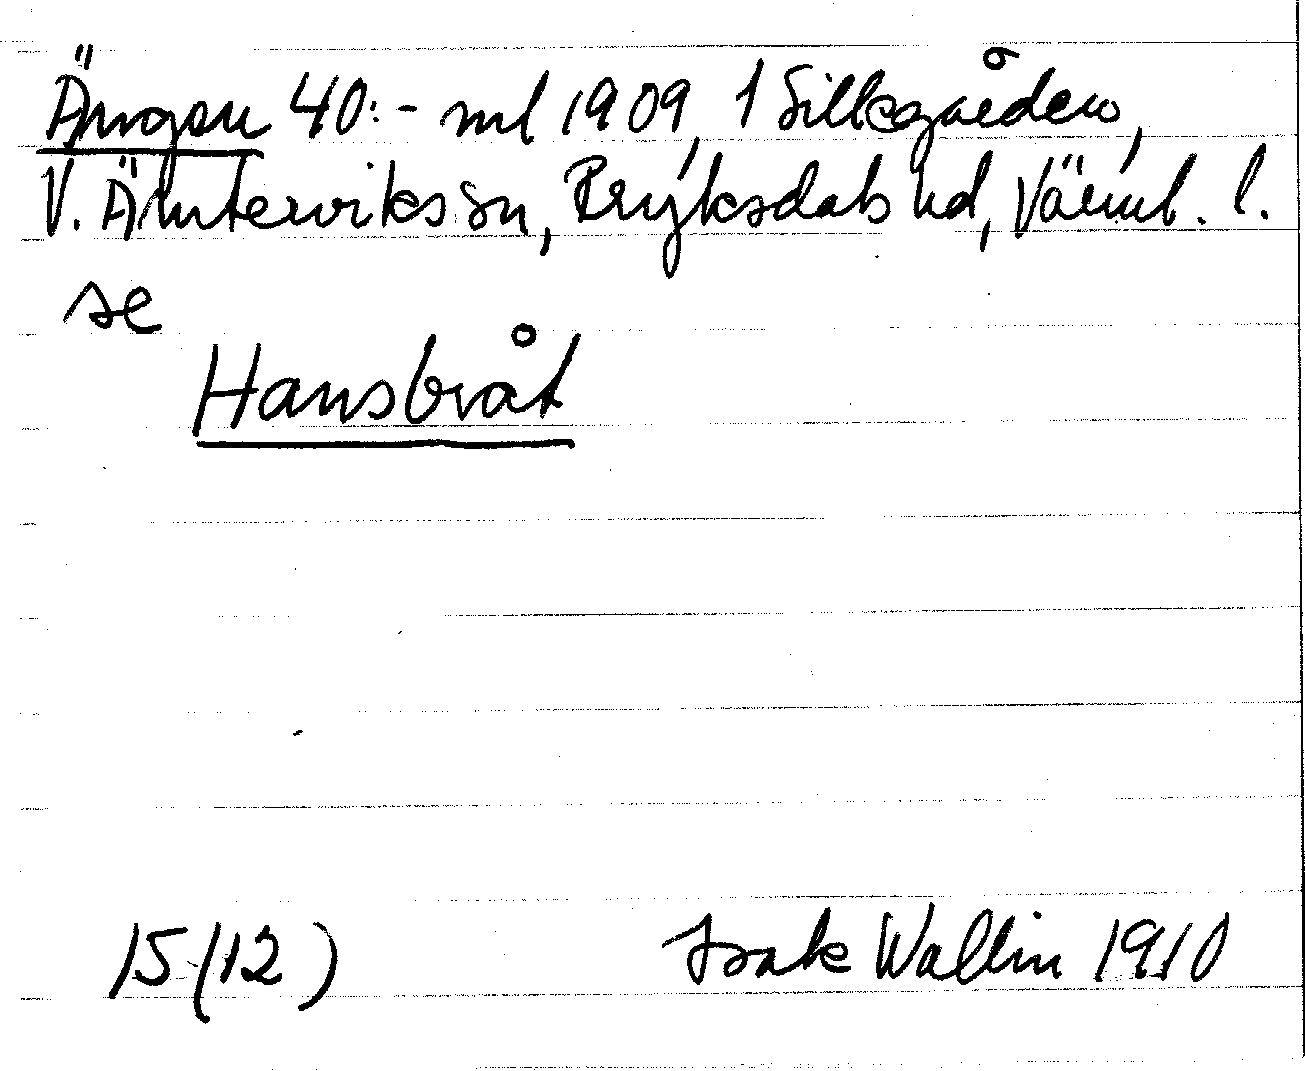 Ängen 40:- ml 1909, 1 Sillegården,
V. Ämterviks sn, Fryksdals hd, Värml. l.
se
Hansbråt
15 (12)
Isak Wallin 1910